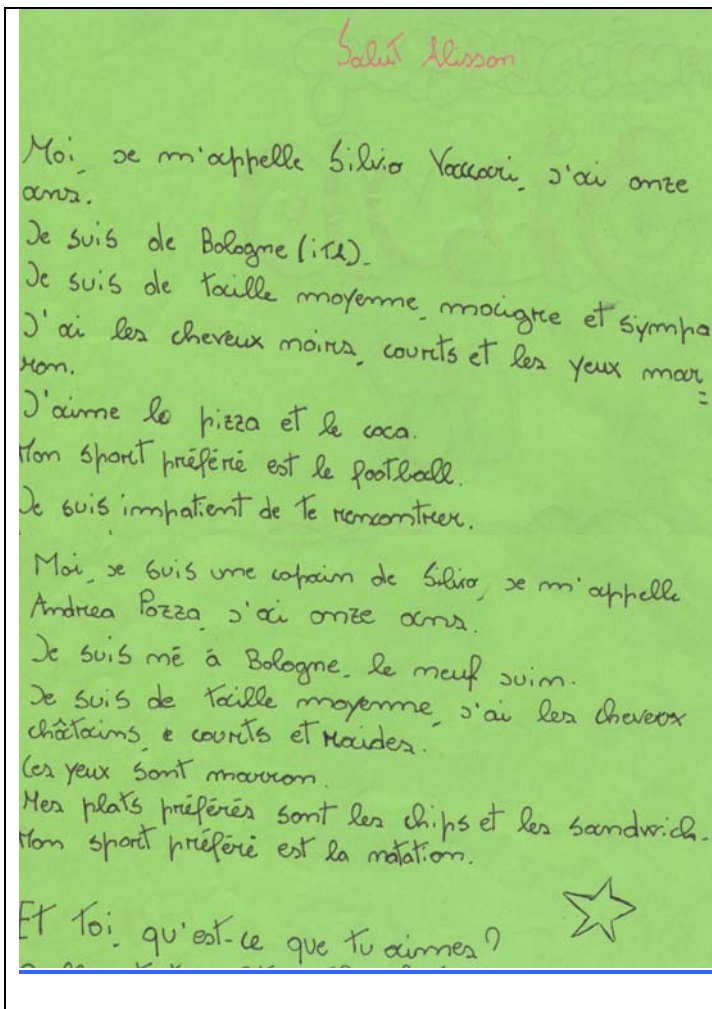 Salut Alisson
Moi, je m'appelle Silvio Vaccari, j'ai onze
ans.
Je suis de Bologne (iTA).
Je suis de taille moyenne, maigre et sympa
J'ai les cheveux noirs, courts et les yeux mar
ron.
J'aime la pizza et le coca.
Mon sport préféré est le football.
Je suis impatient de te rencontrer.
Moi, je suis une copain de Silvio, je m'appelle
Andrea Pozza, j'ai onze ans.
Je suis né à Bologne, le neuf juin.
Je suis de taille moyenne, j'ai les cheveux
châtains, e courts et raides.
Les yeux sont marron.
Mes plats préférés sont les chips et les sandwich.
Mon sport préféré est la natation.
Et toi, qu'est-ce que tu aimes?